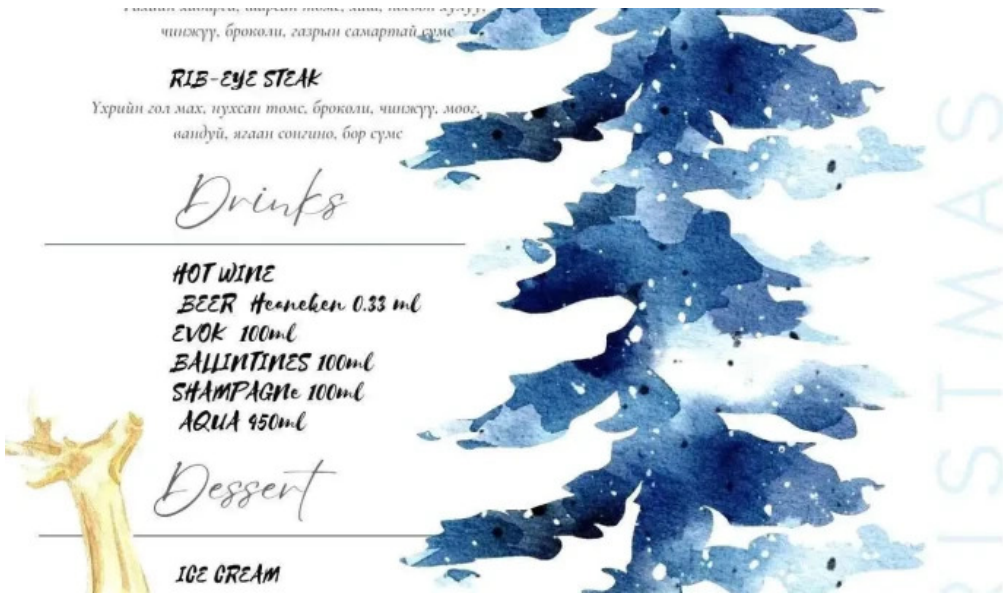 чинжүү, броколи, газрын самартай сумс
RIB-EYE STEAK
Үхрийн гол мах, нухсан томс, броколи, чинжүү, мөөг,
вандуй, ягаан сонгино, бор сумс
Drinks
HOT WINE
BEER Heaneken 0.33 ml
EVOK 100ml
BALLINTINES 100ml
SHAMPAGNe 100ml
AQUA 950ml
Dessert
ICE CREAM
RISTMAS